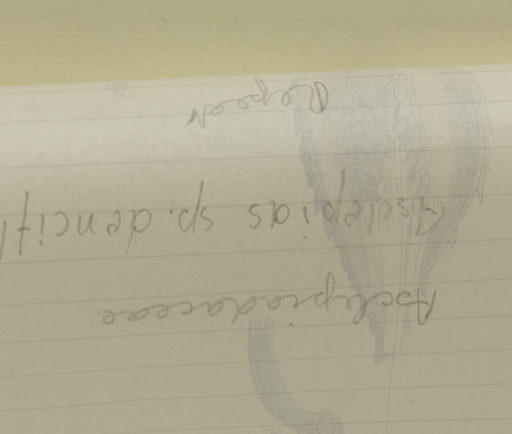 Asclepiadaceae
Asclepias sp. dencifl
Repeat